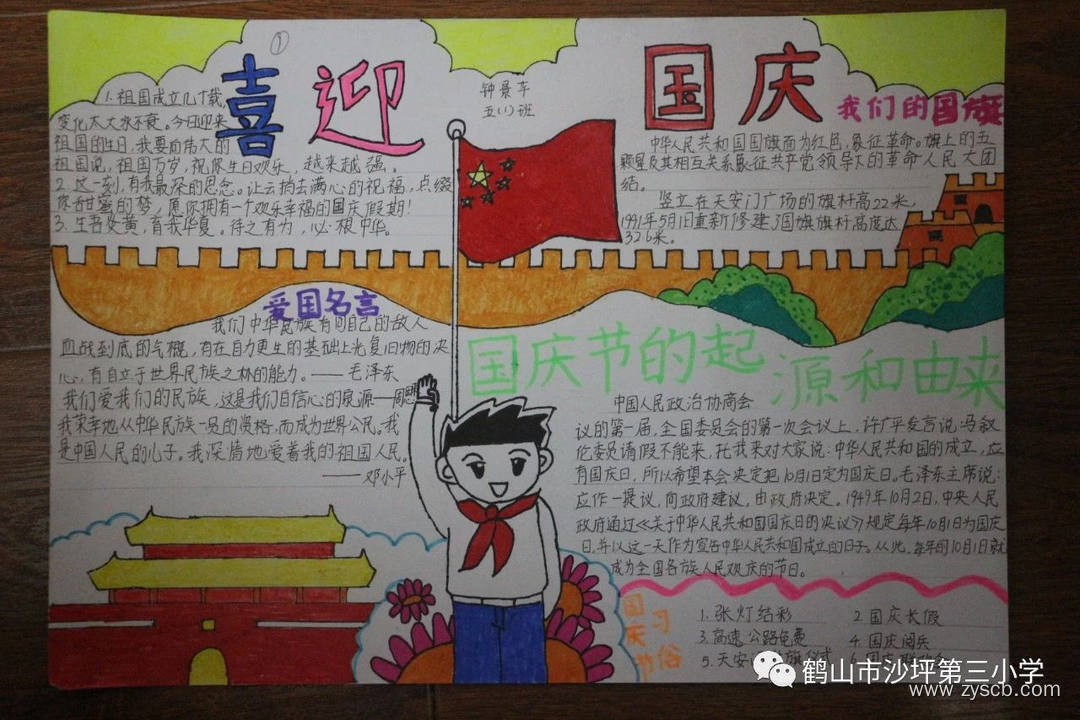 ①
喜迎国庆
钟景车
五(1)班
1.祖国成立几十载,
变化太大永不衰。今日迎来
祖国的生日,我要向伟大的
祖国说,祖国万岁,祝你生日欢乐,越来越强。
2.这一刻,有我最深的思念。让云捎去满心的祝福,点缀
你甜蜜的梦,愿你拥有一个欢乐幸福的国庆假期!
3.生吾炎黄,育我华夏。待之有为,必报中华。
我们的国旗
中华人民共和国国旗面为红色,象征革命。旗上的五
颗星及其相互关系象征共产党领导大的革命人民大团
结。
竖立在天安门广场的旗杆高22米,
1991年5月1日重新修建了国旗旗杆高度达
32.6米。
爱国名言
我们中华民族有同自己的敌人
血战到底的气概,有在自力更生的基础上光复旧物的决
心,有自立于世界民族之林的能力。——毛泽东
我们爱我们的民族,这是我们自信心的泉源—周恩
我荣幸地从中华民族一员的资格,而成为世界公民。我
是中国人民的儿子。我深情地爱着我的祖国人民。
——邓小平
国庆节的起源和由来
中国人民政治协商会
议的第一届全国委员会的第一次会议上,许广平发言说:马叙
伦委员请假不能来,托我来对大家说:中华人民共和国的成立,应
有国庆日,所以希望本会决定把10月1日定为国庆日。毛泽东主席说:
应作一提议,向政府建议,由政府决定。1949年10月2日,中央人民
政府通过《关于中华人民共和国国庆日的决议》规定每年10月1日为国庆
日,并以这一天作为宣告中华人民共和国成立的日子。从此,每年的10月1日就
成为全国各族人民欢庆的节日。
国庆节习俗
1.张灯结彩
2.国庆长假
3.高速公路免费
4.国庆阅兵
5.天安门
鹤山市沙坪第三小学
www.zyscb.com